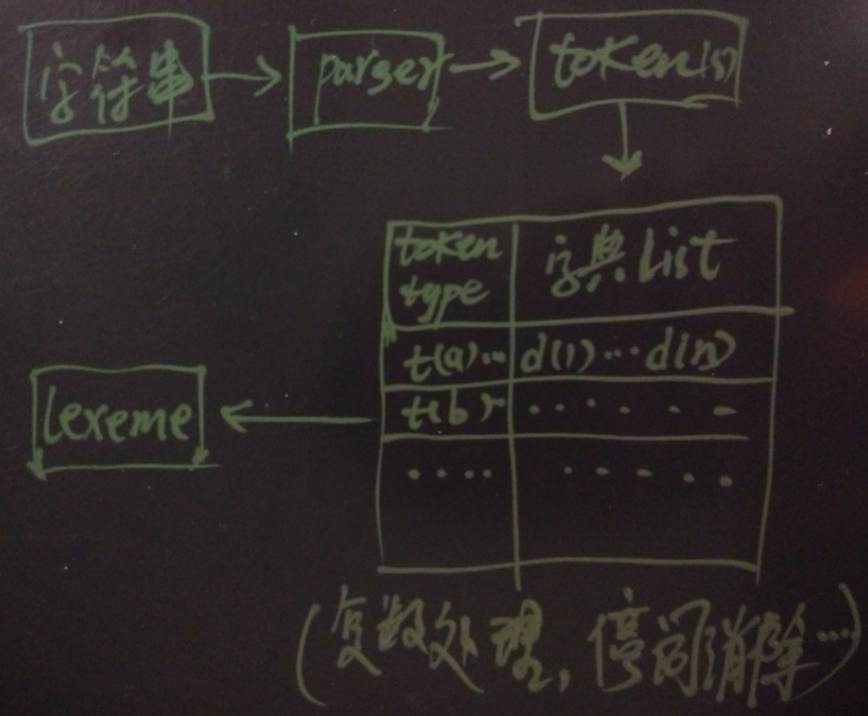 字符串 parser token(s)
token type 字典 List
t(a)... d(1)...d(n)
t(b) ......
.... ......
lexeme
(复数处理, 停词消除...)